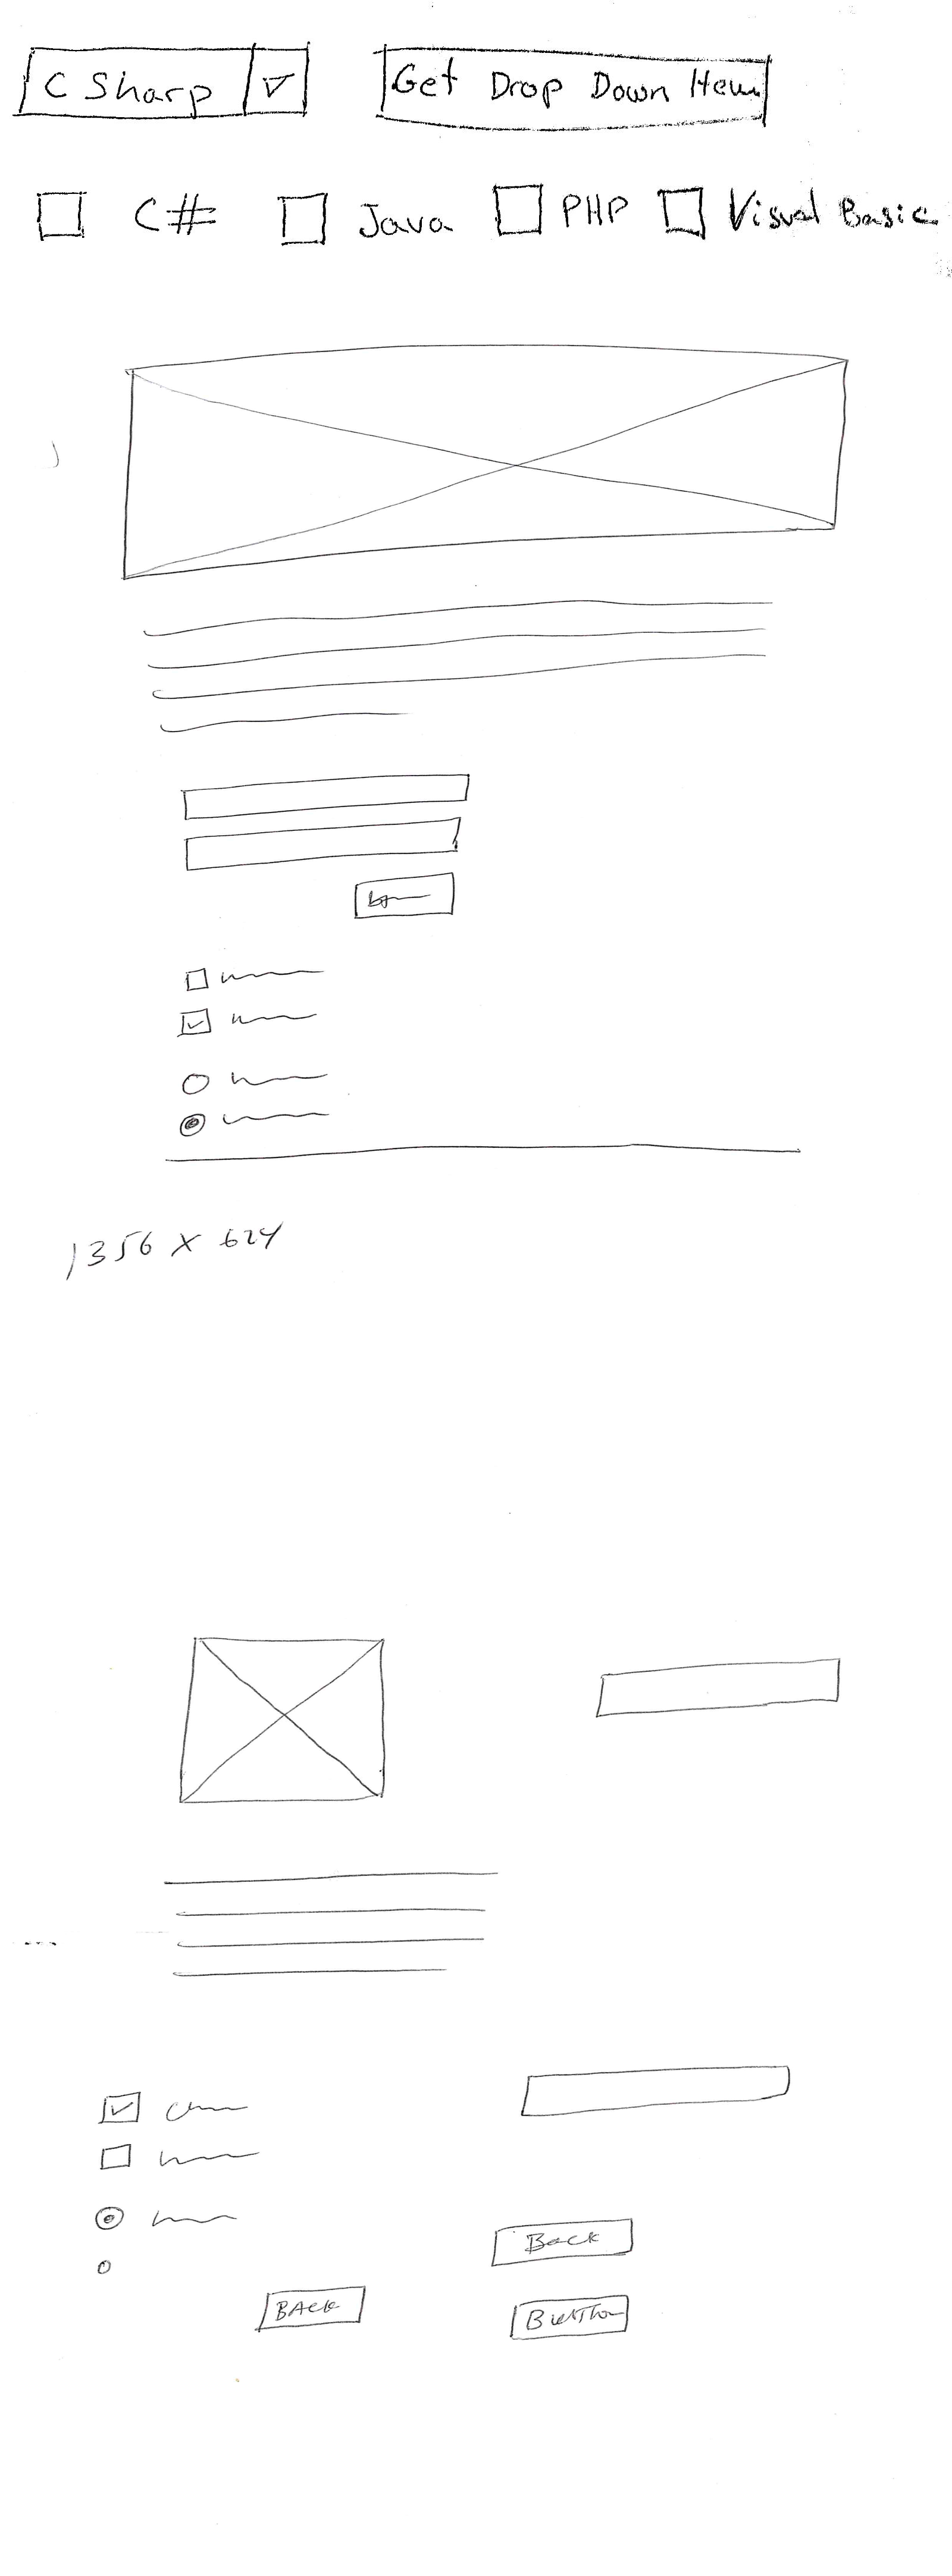 C Sharp Get Drop Down Item
C# Java PHP Visual Basic
1356 x 624
Back
BACK
Button